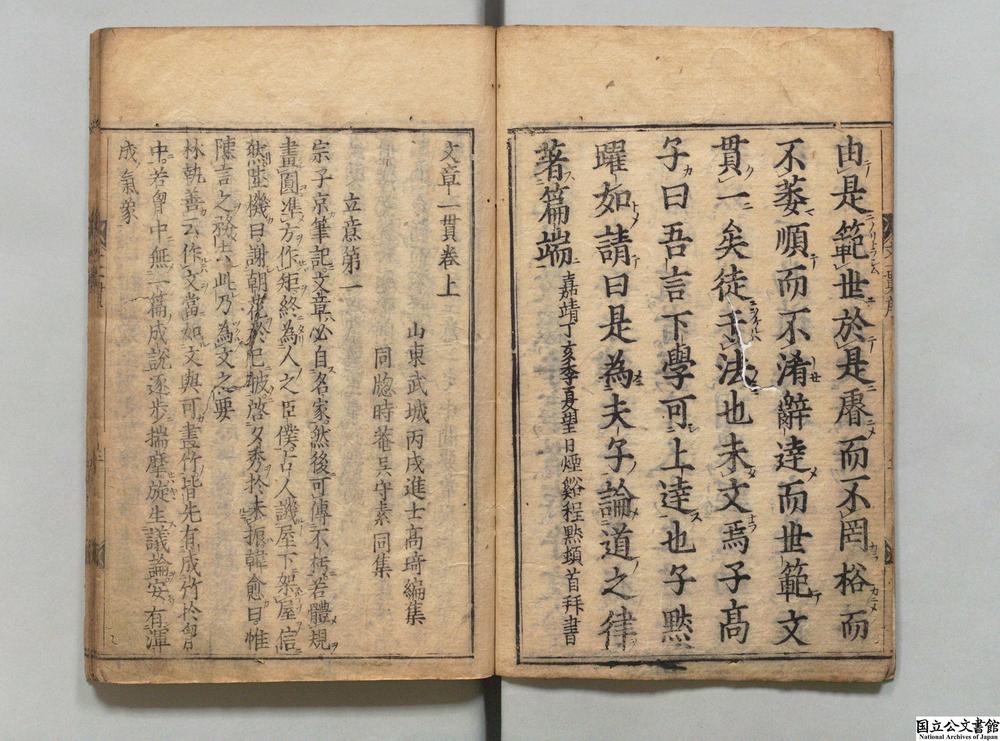 由是範世於是廥而不罔格而
不萎順而不淆辭逹而世範文
貫一矣徒法也未文焉子高
子曰吾言下學可上逹也子黙
躍如請曰是為夫子論道之律
著篇端
嘉靖丁亥季夏望日煙谿程黙頓首拜書
文章一貫卷上
山東武城丙戌進士高琦編集
同邑時菴吕守素同集
立意第一
宗子京筆記文章必自名家然後可傳不朽若體規
畫圓准方作矩終為人之臣僕古人譏屋下架屋信
然陸機曰謝朝花於已披啓夕秀於未振韓愈曰惟
陳言之務去此乃為文之要
林執善云作文當如文與可畫竹皆先有成竹於胷
中若胷中無一篇成說逐步揣摩旋生議論安有渾
成氣象
国立公文書館
National Archives of Japan